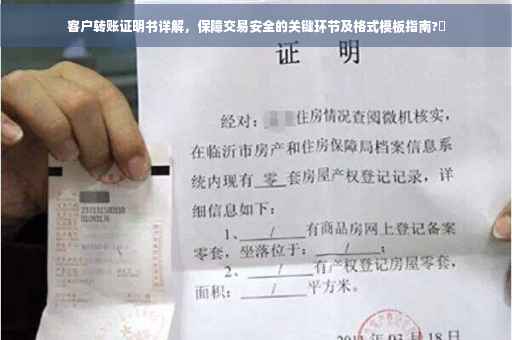 客户转账证明书详解，保障交易安全的关键环节及格式模板指南?
证 明
经对：住房情况查阅微机核实，
在临沂市房产和住房保障局档案信息系
统内现有 零 套房屋产权登记记录，详
细信息如下：
1、 / 有商品房网上登记备案
零套，坐落位于： / ；
2、 / 有产权登记房屋零套，
面积： / 平方米。